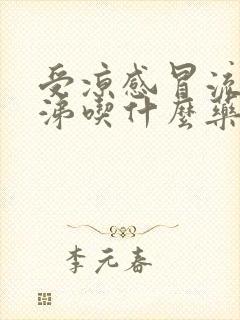 受凉感冒流
涕喫什麼藥
李元春